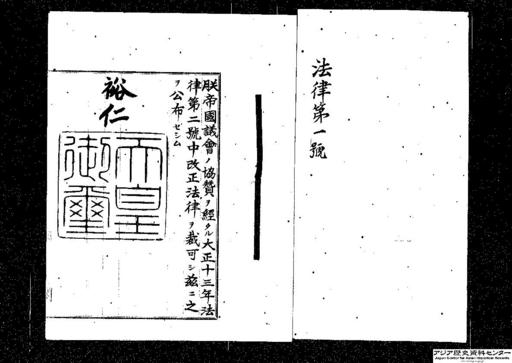 法律第一號
朕帝國議會ノ協贊ヲ經タル大正十三年法
律第二號中改正法律ヲ裁可シ茲ニ之
ヲ公布セシム
裕仁
天皇御璽
アジア歴史資料センター
Japan Center for Asian Historical Records